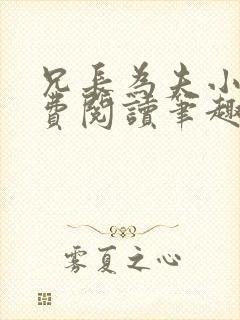 兄長為夫小
費閱讀筆趣
雾夏之心